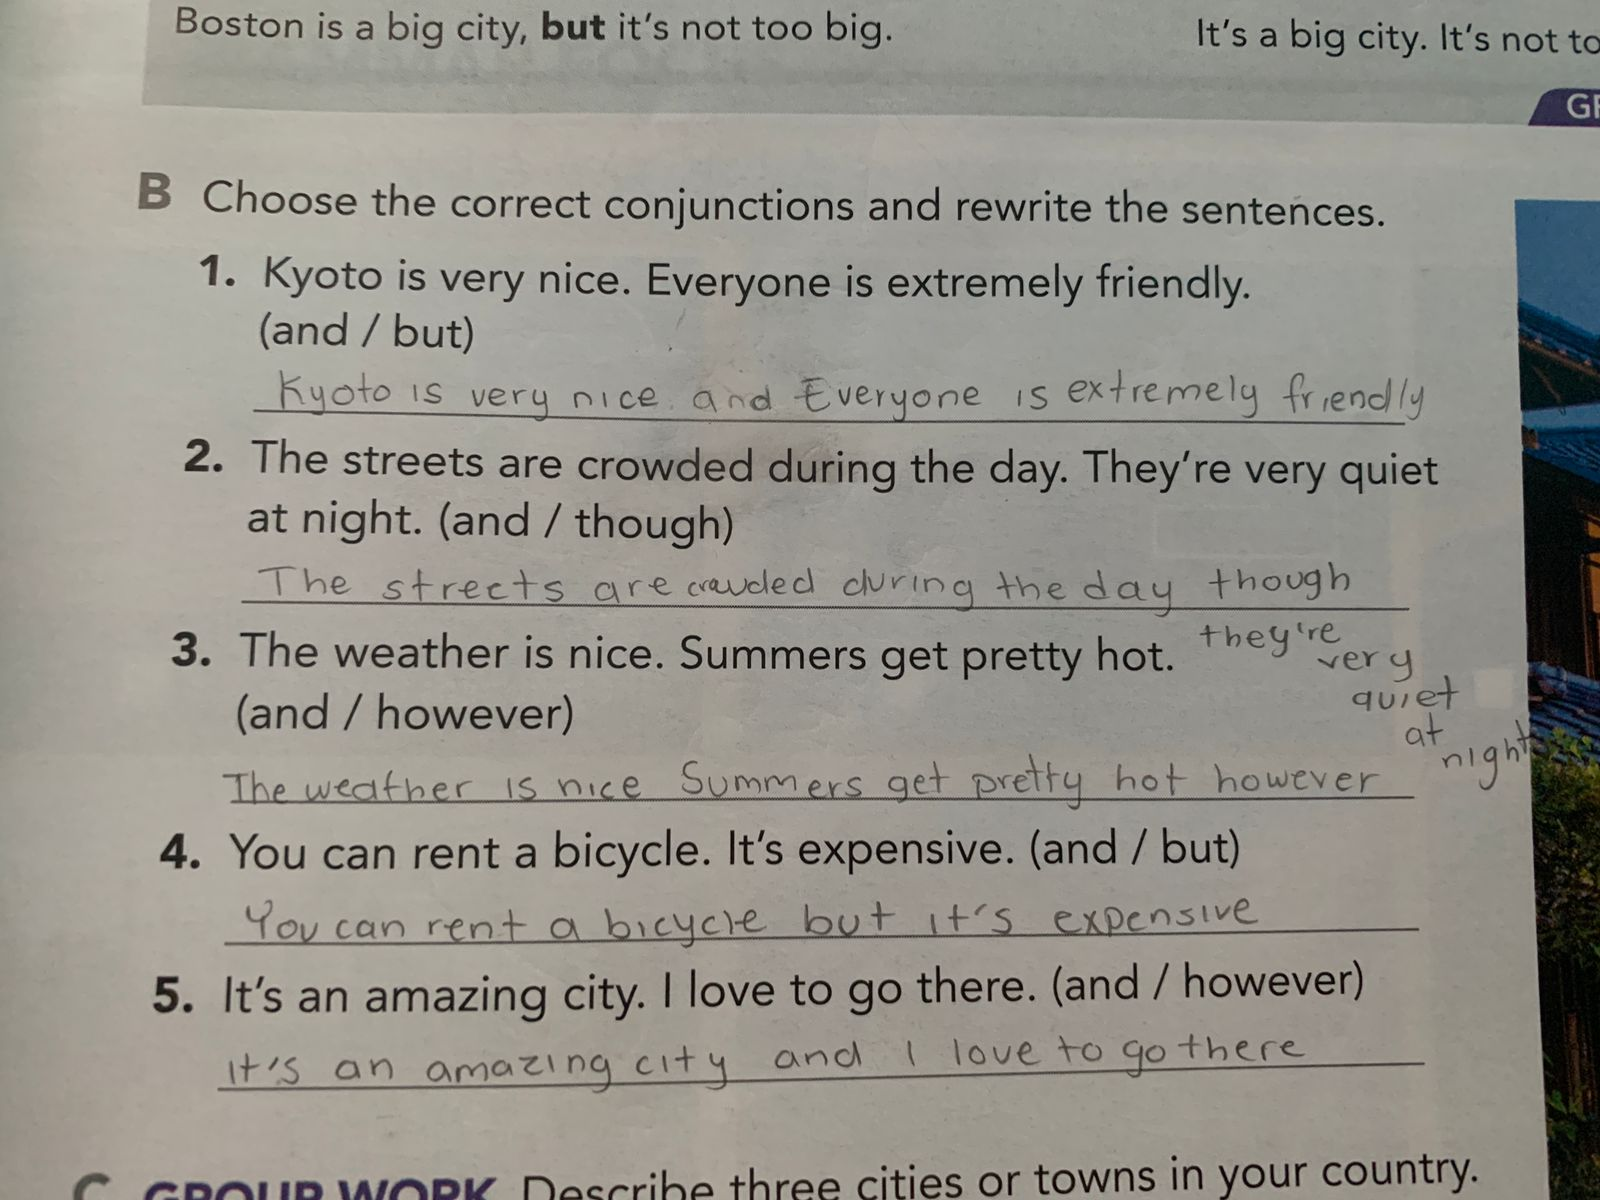 Boston is a big city, but it's not too big.
It's a big city. It's not to
B Choose the correct conjunctions and rewrite the sentences.
1. Kyoto is very nice. Everyone is extremely friendly.
(and / but)
Kyoto is very nice. and Everyone is extremely friendly
2. The streets are crowded during the day. They're very quiet
at night. (and / though)
The streets are crowded during the day though
they're
very
quiet
at
night
3. The weather is nice. Summers get pretty hot.
(and / however)
The weather is nice Summers get pretty hot however
4. You can rent a bicycle. It's expensive. (and / but)
You can rent a bicycle but it's expensive
5. It's an amazing city. I love to go there. (and / however)
It's an amazing city and I love to go there
C GROUP WORK Describe three cities or towns in your country.